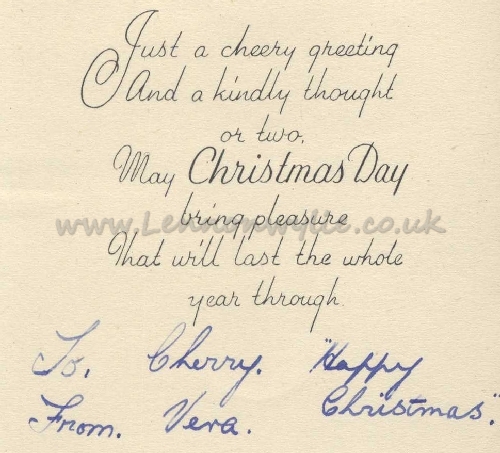 Just a cheery greeting
And a kindly thought
or two,
May Christmas Day
bring pleasure
www.Lennonwylie.co.uk
That will last the whole
year through.
To, Cherry. "Happy
From. Vera. Christmas."